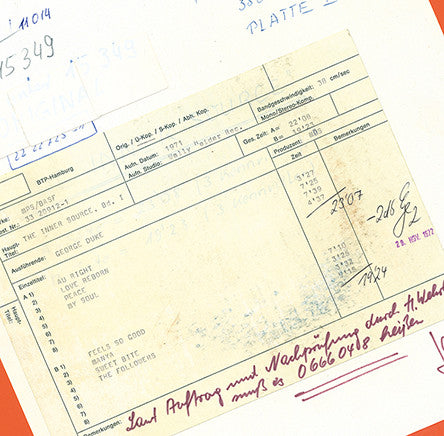 11014
15349
15 349
PLATTE
22 22723-2
BTP-Hamburg
Orig. / Ü-Kop. / S-Kop. / Abh. Kop.
Bandgeschwindigkeit: 38 cm/sec
Mono/Stereo-Komp.
Aufn. Datum: 1971
Aufn. Studio: Wally Heider Rec.
Ges. Zeit: A= 22'08
B= 19'23
MPS/BASF
33 20912-1
Produzent: MPS
Zeit
Bemerkungen
Haupt-Titel: THE INNER SOURCE, Bd. 1
Ausführende: GEORGE DUKE
Einzeltitel:
A 1) AU RIGHT 3'27
2) LOVE REBORN 7'25
3) PEACE 7'39
4) MY SOUL
23'07
-2dB
28. NOV. 1972
5)
6)
7)
8)
B 1) FEELS SO GOOD
2) MANYA
3) SWEET BITE
4) THE FOLLOWERS
19'24
5)
6)
7)
8)
Bemerkungen:
Laut Auftrag und Nachprüfung durch H. Wehr
muß es 0666048 heißen
Haupt-
Titel: